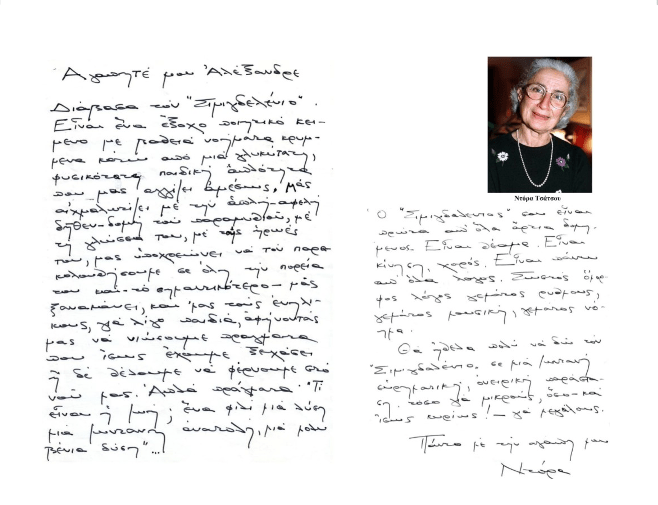 Αγαπητέ μου Αλέξανδρε
Διάβασα τον "Σιμιγδαλένιο".
Είναι ένα έξοχο ποιητικό κεί-
μενο με βαθειά νοήματα κρυμ-
μένα κάτω από μιά γλυκύτατη,
φυσικότατη παιδική απλότητα
που μας αγγίζει αμέσως, μας
αιχμαλωτίζει με την απλή-αφελή
δήθεν-δομή του παραμυθιού, με
τη γλώσσα του, με τους ήρωές
του, μας υποχρεώνει να τον παρα-
κολουθήσουμε σε όλη την πορεία
του και-το σημαντικότερο-μάς
ξανακάνει, και μας τους ενήλι-
κους, γιά λίγο παιδιά, αφήνοντάς
μας να νιώσουμε πράγματα
που ίσως έχουμε ξεχάσει
ή δε θέλουμε να φέρνουμε στό
νού μας. Απλά πράγματα. "Τί
είναι η ζωή; ένα φιλί μιά λύση
μιά ζωντανή ανατολή, μιά μολυ-
βένια δύση"...
Ντόρα Τσάτσου
Ο "Σιμιγδαλένιος" σου είναι
πρώτα απ' όλα άρτια δομη-
μένος. Είναι θέαμα. Είναι
κίνηση, χορός. Είναι πάνω
απ' όλα λόγος. Σωστός όμορ-
φος λόγος γεμάτος ρυθμούς,
γεμάτος μουσική, γεμάτος νό-
ημα.
Θα ήθελα πολύ να δω τον
"Σιμιγδαλένιο" σε μιά ζωντανή
ευρηματική, ονειρική παράστα-
ση. τόσο γιά μικρούς, όσο-και
ίσως κυρίως!-γιά μεγάλους.
Πάντα με την αγάπη μου
Ντόρα